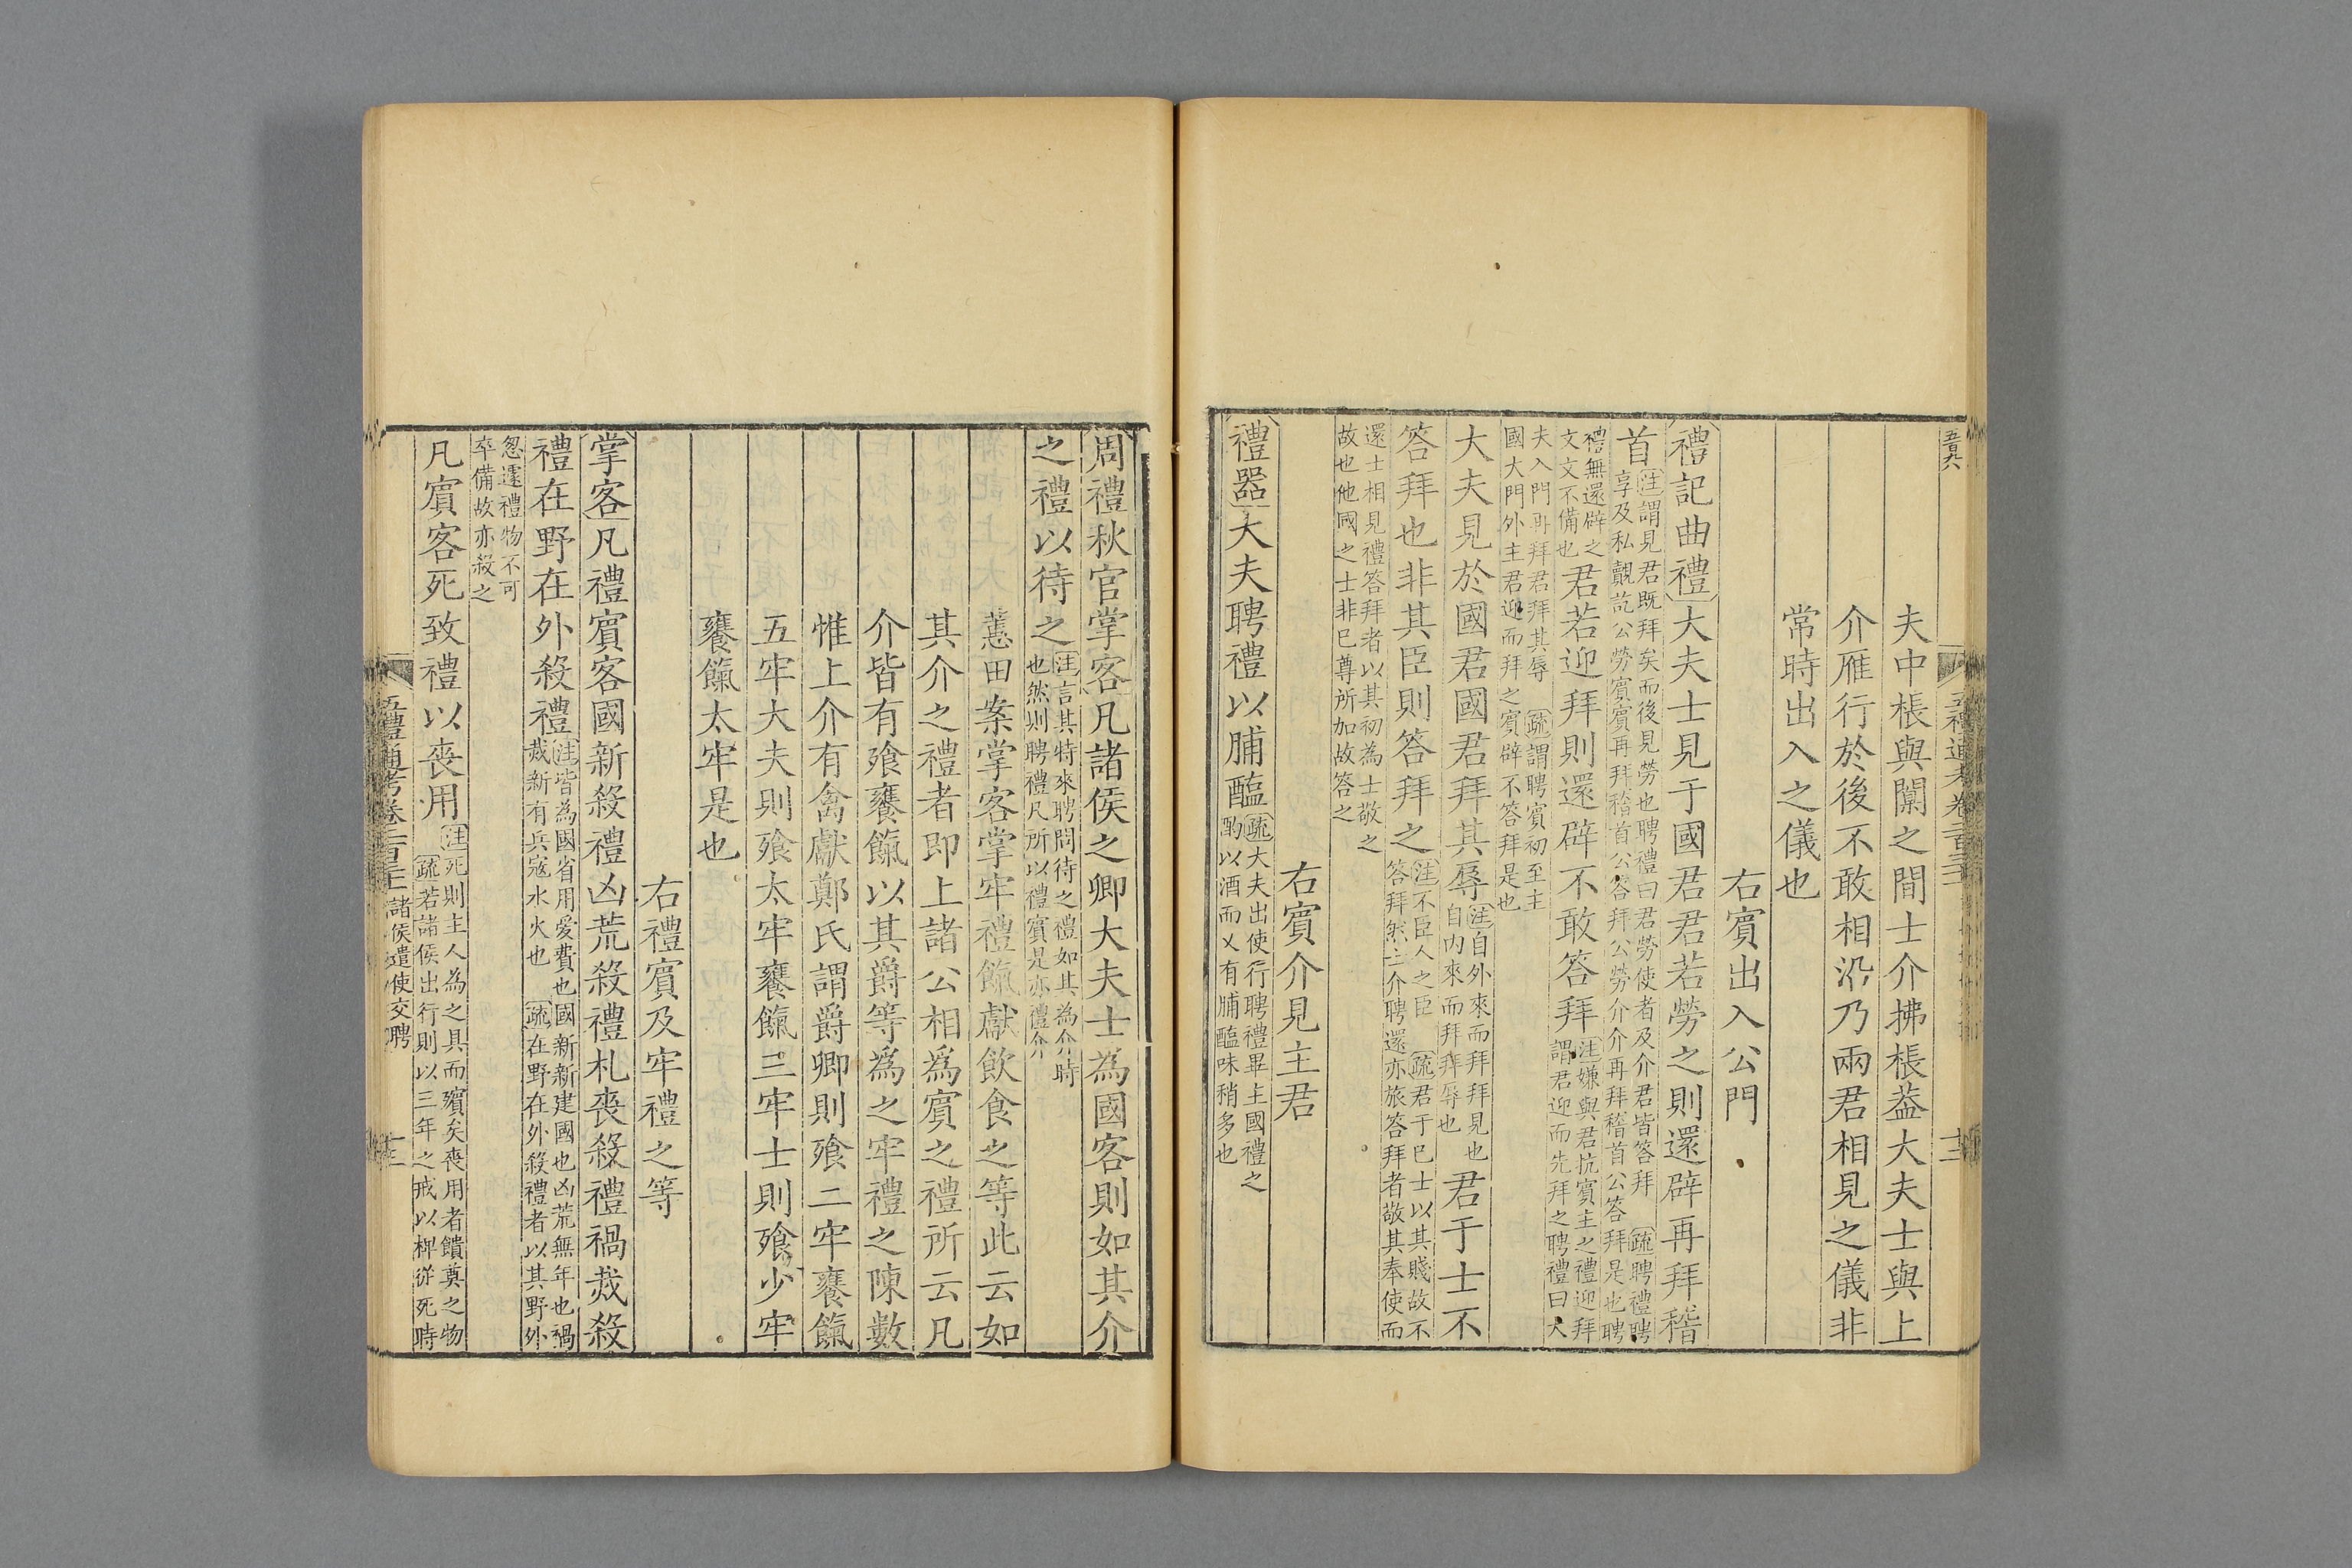 夫中棖與闑之間士介拂棖葢大夫士與上
介雁行於後不敢相沿乃兩君相見之儀非
常時出入之儀也
右賓出入公門
禮記曲禮大夫士見于國君君若勞之則還辟再拜稽
首注謂見君既拜矣而後見勞也聘禮曰君勞使者及介君皆答拜 疏聘禮聘
享及私覿訖公勞賓賓再拜稽首公答拜公勞介介再拜稽首公答拜是也聘
禮無還辟之
文文不備也君若迎拜則還辟不敢答拜注嫌與君抗賓主之禮迎拜
謂君迎而先拜之聘禮曰大
夫入門再拜君拜其辱 疏謂聘賓初至主
國大門外主君迎而拜之賓辟不答拜是也
大夫見於國君國君拜其辱注自外來而拜拜見也
自內來而拜拜辱也君于士不
答拜也非其臣則答拜之注不臣人之臣 疏君于己士以其賤故不
答拜然士介聘還亦旅答拜者敬其奉使而
還士相見禮答拜者以其初為士敬之
故也他國之士非己尊所加故答之
右賓介見主君
禮器大夫聘禮以脯醢疏大夫出使行聘禮畢主國禮之
酌以酒而又有脯醢味稍多也
周禮秋官掌客凡諸侯之卿大夫士為國客則如其介
之禮以待之注言其特來聘問待之禮如其為介時
也然則聘禮凡所以禮賓是亦禮介
蕙田案掌客掌牢禮餼獻飲食之等此云如
其介之禮者即上諸公相為賓之禮所云凡
介皆有飧饔餼以其爵等為之牢禮之陳數
惟上介有禽獻鄭氏謂爵卿則飧二牢饔餼
五牢大夫則飧太牢饔餼三牢士則飧少牢
饔餼太牢是也
右禮賓及牢禮之等
掌客凡禮賓客國新殺禮凶荒殺禮札喪殺禮禍烖殺
禮在野在外殺禮注皆為國省用愛費也國新新建國也凶荒無年也禍
烖新有兵寇水火也 疏在野在外殺禮者以其野外
怱遽禮物不可
卒備故亦殺之
凡賓客死致禮以喪用注死則主人為之具而殯矣喪用者饋奠之物
疏若諸侯出行則以三年之戒以椑從死時
五禮通考卷二百三十 諸侯遣使交聘
十三